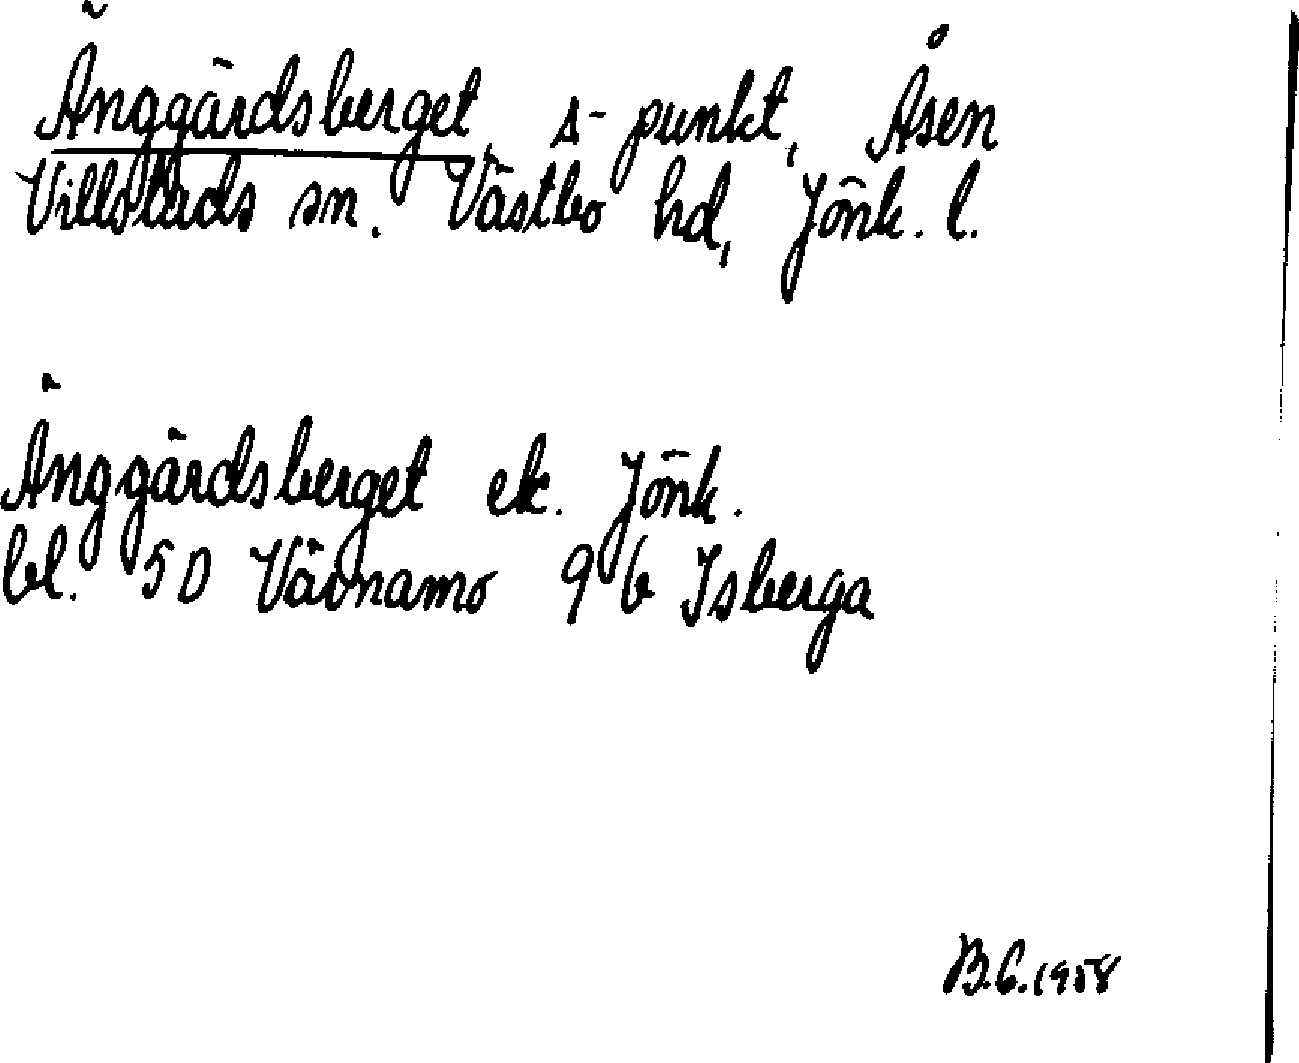 Änggärdsberget, s-punkt, Åsen
Villstads sn. Västbo hd, Jönk. l.
Änggärdsberget ek. Jönk.
bl. 5D Värnamo 9 b Isberga
B.G.1958